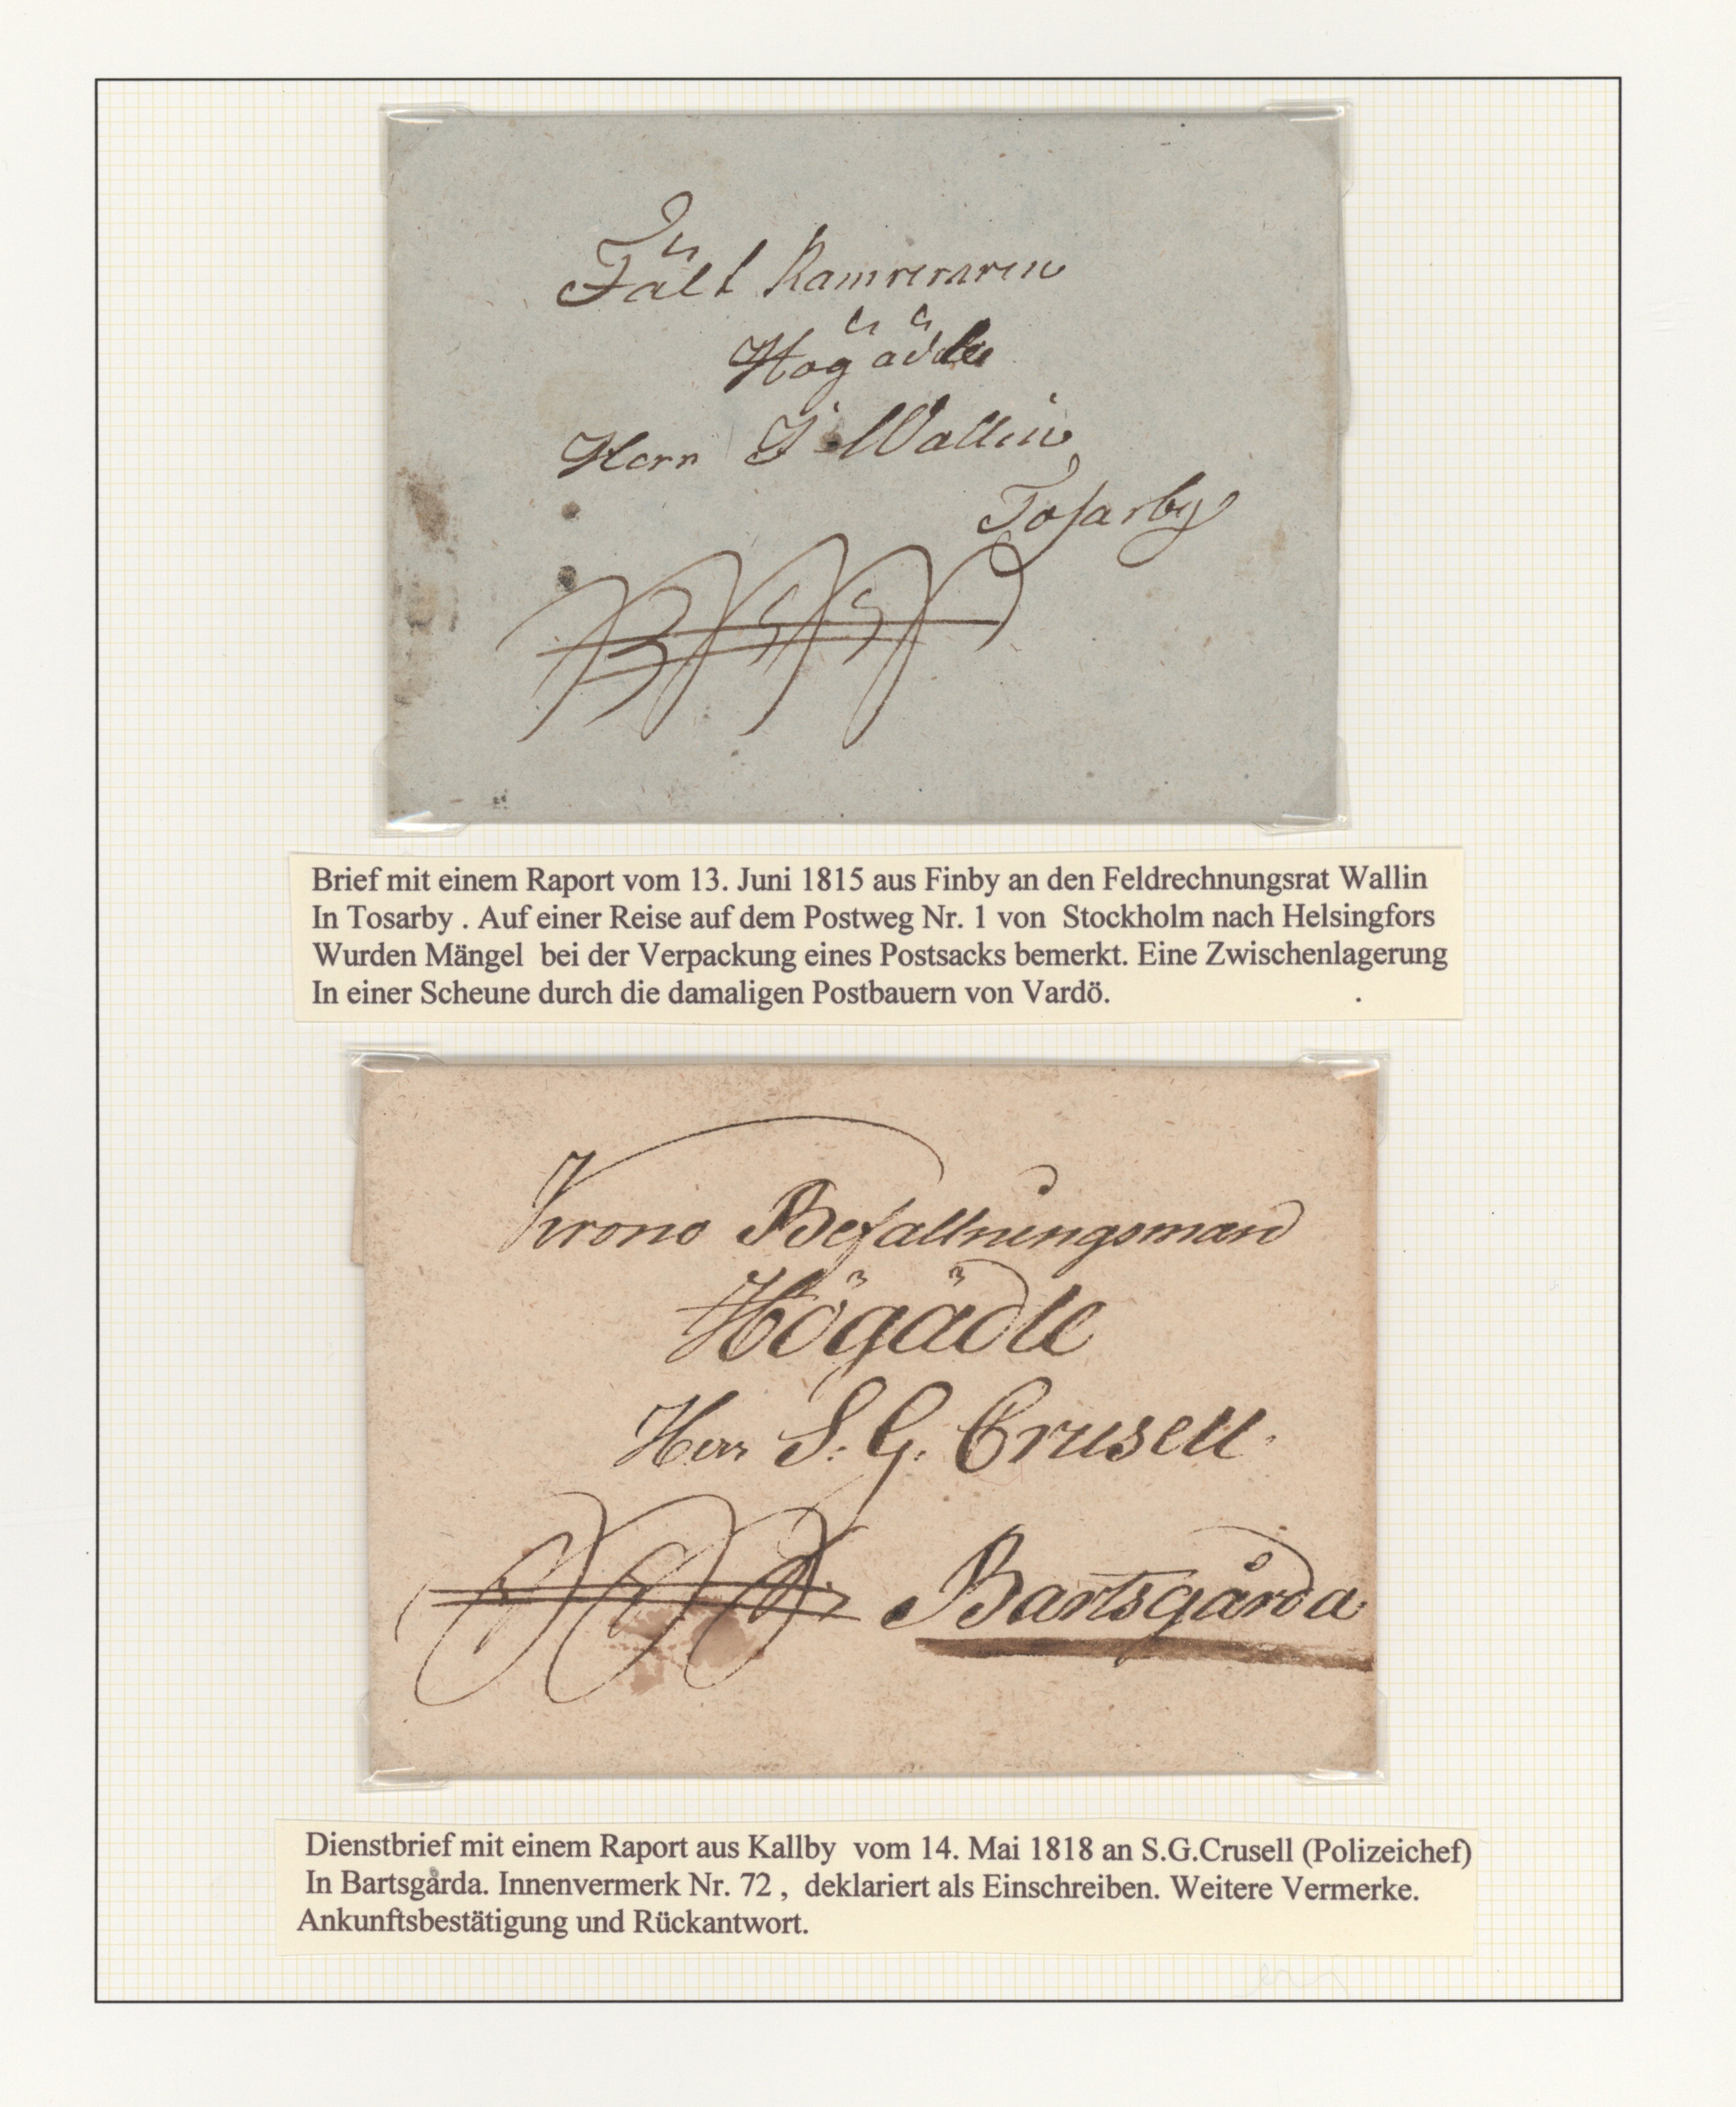 Fält Kamreraren
Högädle
Herr J Wallin
Tosarby
Brief mit einem Raport vom 13. Juni 1815 aus Finby an den Feldrechnungsrat Wallin
In Tosarby . Auf einer Reise auf dem Postweg Nr. 1 von Stockholm nach Helsingfors
Wurden Mängel bei der Verpackung eines Postsacks bemerkt. Eine Zwischenlagerung
In einer Scheune durch die damaligen Postbauern von Vardö.
Krono Befallningsman
Högädle
Herr S. G. Crusell.
Bartsgårda
Dienstbrief mit einem Raport aus Kallby vom 14. Mai 1818 an S.G.Crusell (Polizeichef)
In Bartsgårda. Innenvermerk Nr. 72 , deklariert als Einschreiben. Weitere Vermerke.
Ankunftsbestätigung und Rückantwort.